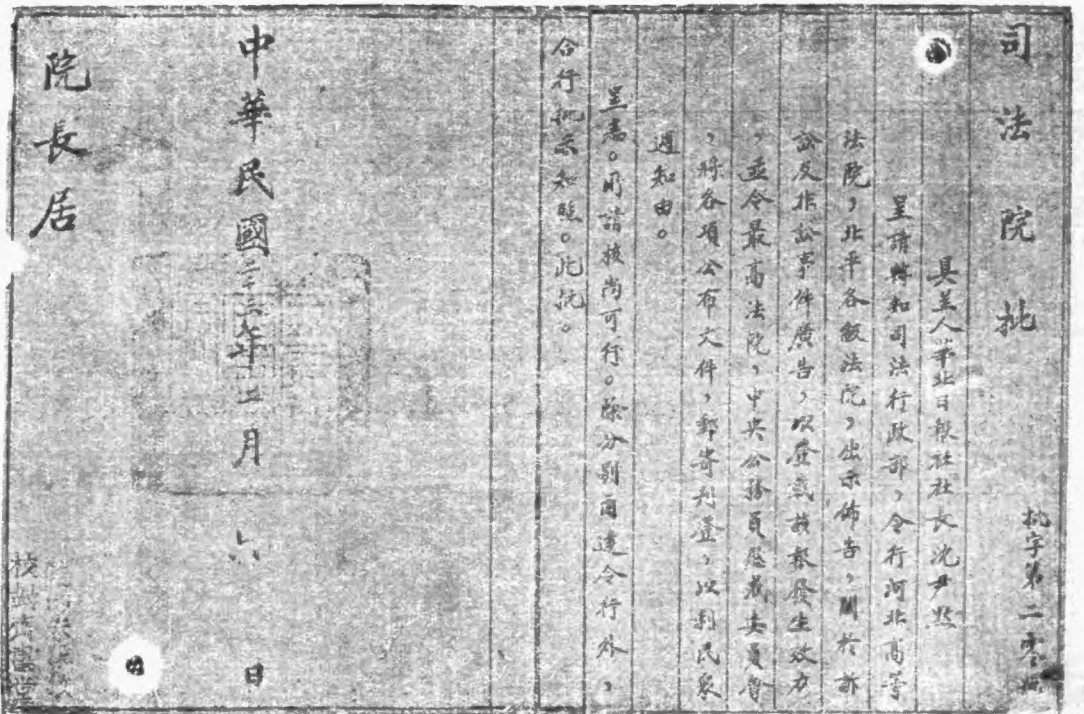 司法院批
批字第二零號
具呈人華北日報社社長沈尹默
呈請轉知司法行政部，令行河北高等
法院，北平各級法院，出示佈告，關於訴
訟及非訟事件廣告，以登載該報發生效力
，並令最高法院，中央公務員懲戒委員會
，將各項公布文件，郵寄刊登，以利民衆
週知由。
呈悉。所請核尚可行。除分別函達令行外，
合行批示知照。此批。
中華民國二十二年 月 六 日
院長居
校對